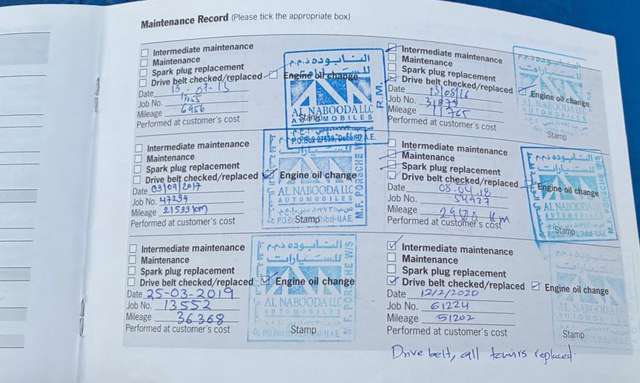 Maintenance Record (Please tick the appropriate box)
Intermediate maintenance
Maintenance
Spark plug replacement
Drive belt checked/replaced Engine oil change
Date
Job No.
Mileage 6956
Performed at customer's cost
Stamp
AL NABOODA LLC
AUTOMOBILES
Intermediate maintenance
Maintenance
Spark plug replacement
Drive belt checked/replaced Engine oil change
Date 13/08/16
Job No. 31879
Mileage 11765
Performed at customer's cost
Stamp
Intermediate maintenance
Maintenance
Spark plug replacement
Drive belt checked/replaced Engine oil change
Date 03/09/2017
Job No. 47239
Mileage 21533 km
Performed at customer's cost
Stamp
AL NABOODA LLC
AUTOMOBILES
Intermediate maintenance
Maintenance
Spark plug replacement
Drive belt checked/replaced Engine oil change
Date 08.04.18
Job No.
Mileage Km
Performed at customer's cost
Stamp
Intermediate maintenance
Maintenance
Spark plug replacement
Drive belt checked/replaced Engine oil change
Date 25-03-2019
Job No. 13552
Mileage 36368
Performed at customer's cost
Stamp
AL NABOODA LLC
AUTOMOBILES
Intermediate maintenance
Maintenance
Spark plug replacement
Drive belt checked/replaced Engine oil change
Date 12/2/2020
Job No. 61224
Mileage 51202
Performed at customer's cost
Stamp
Drive belt, all replaced